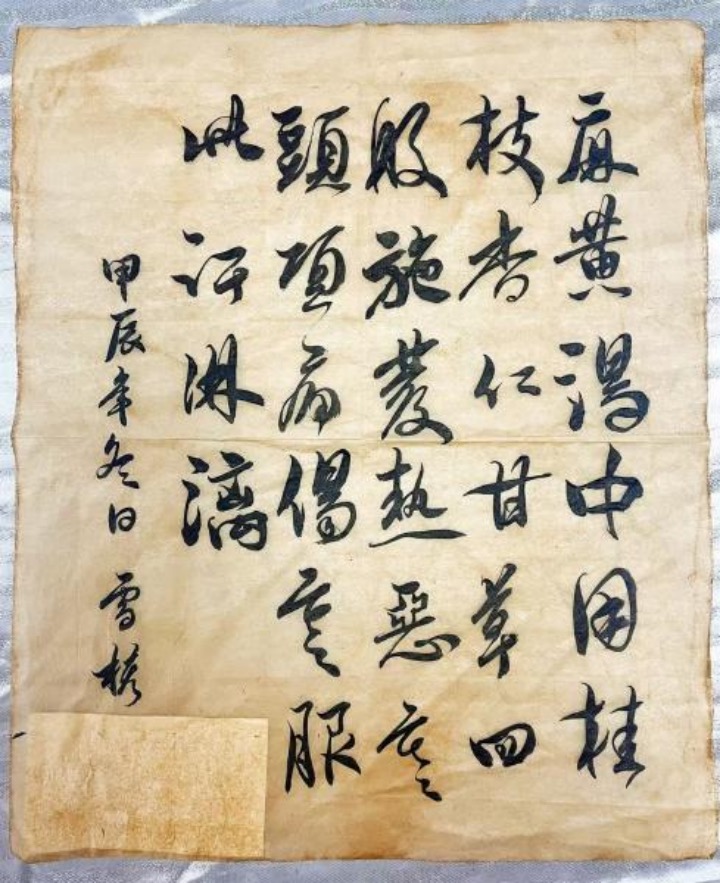 麻黃湯中用桂
枝杏仁甘草四
般施發熱惡寒
頭項痛傷寒服
此汗淋漓
甲辰年冬日 雪